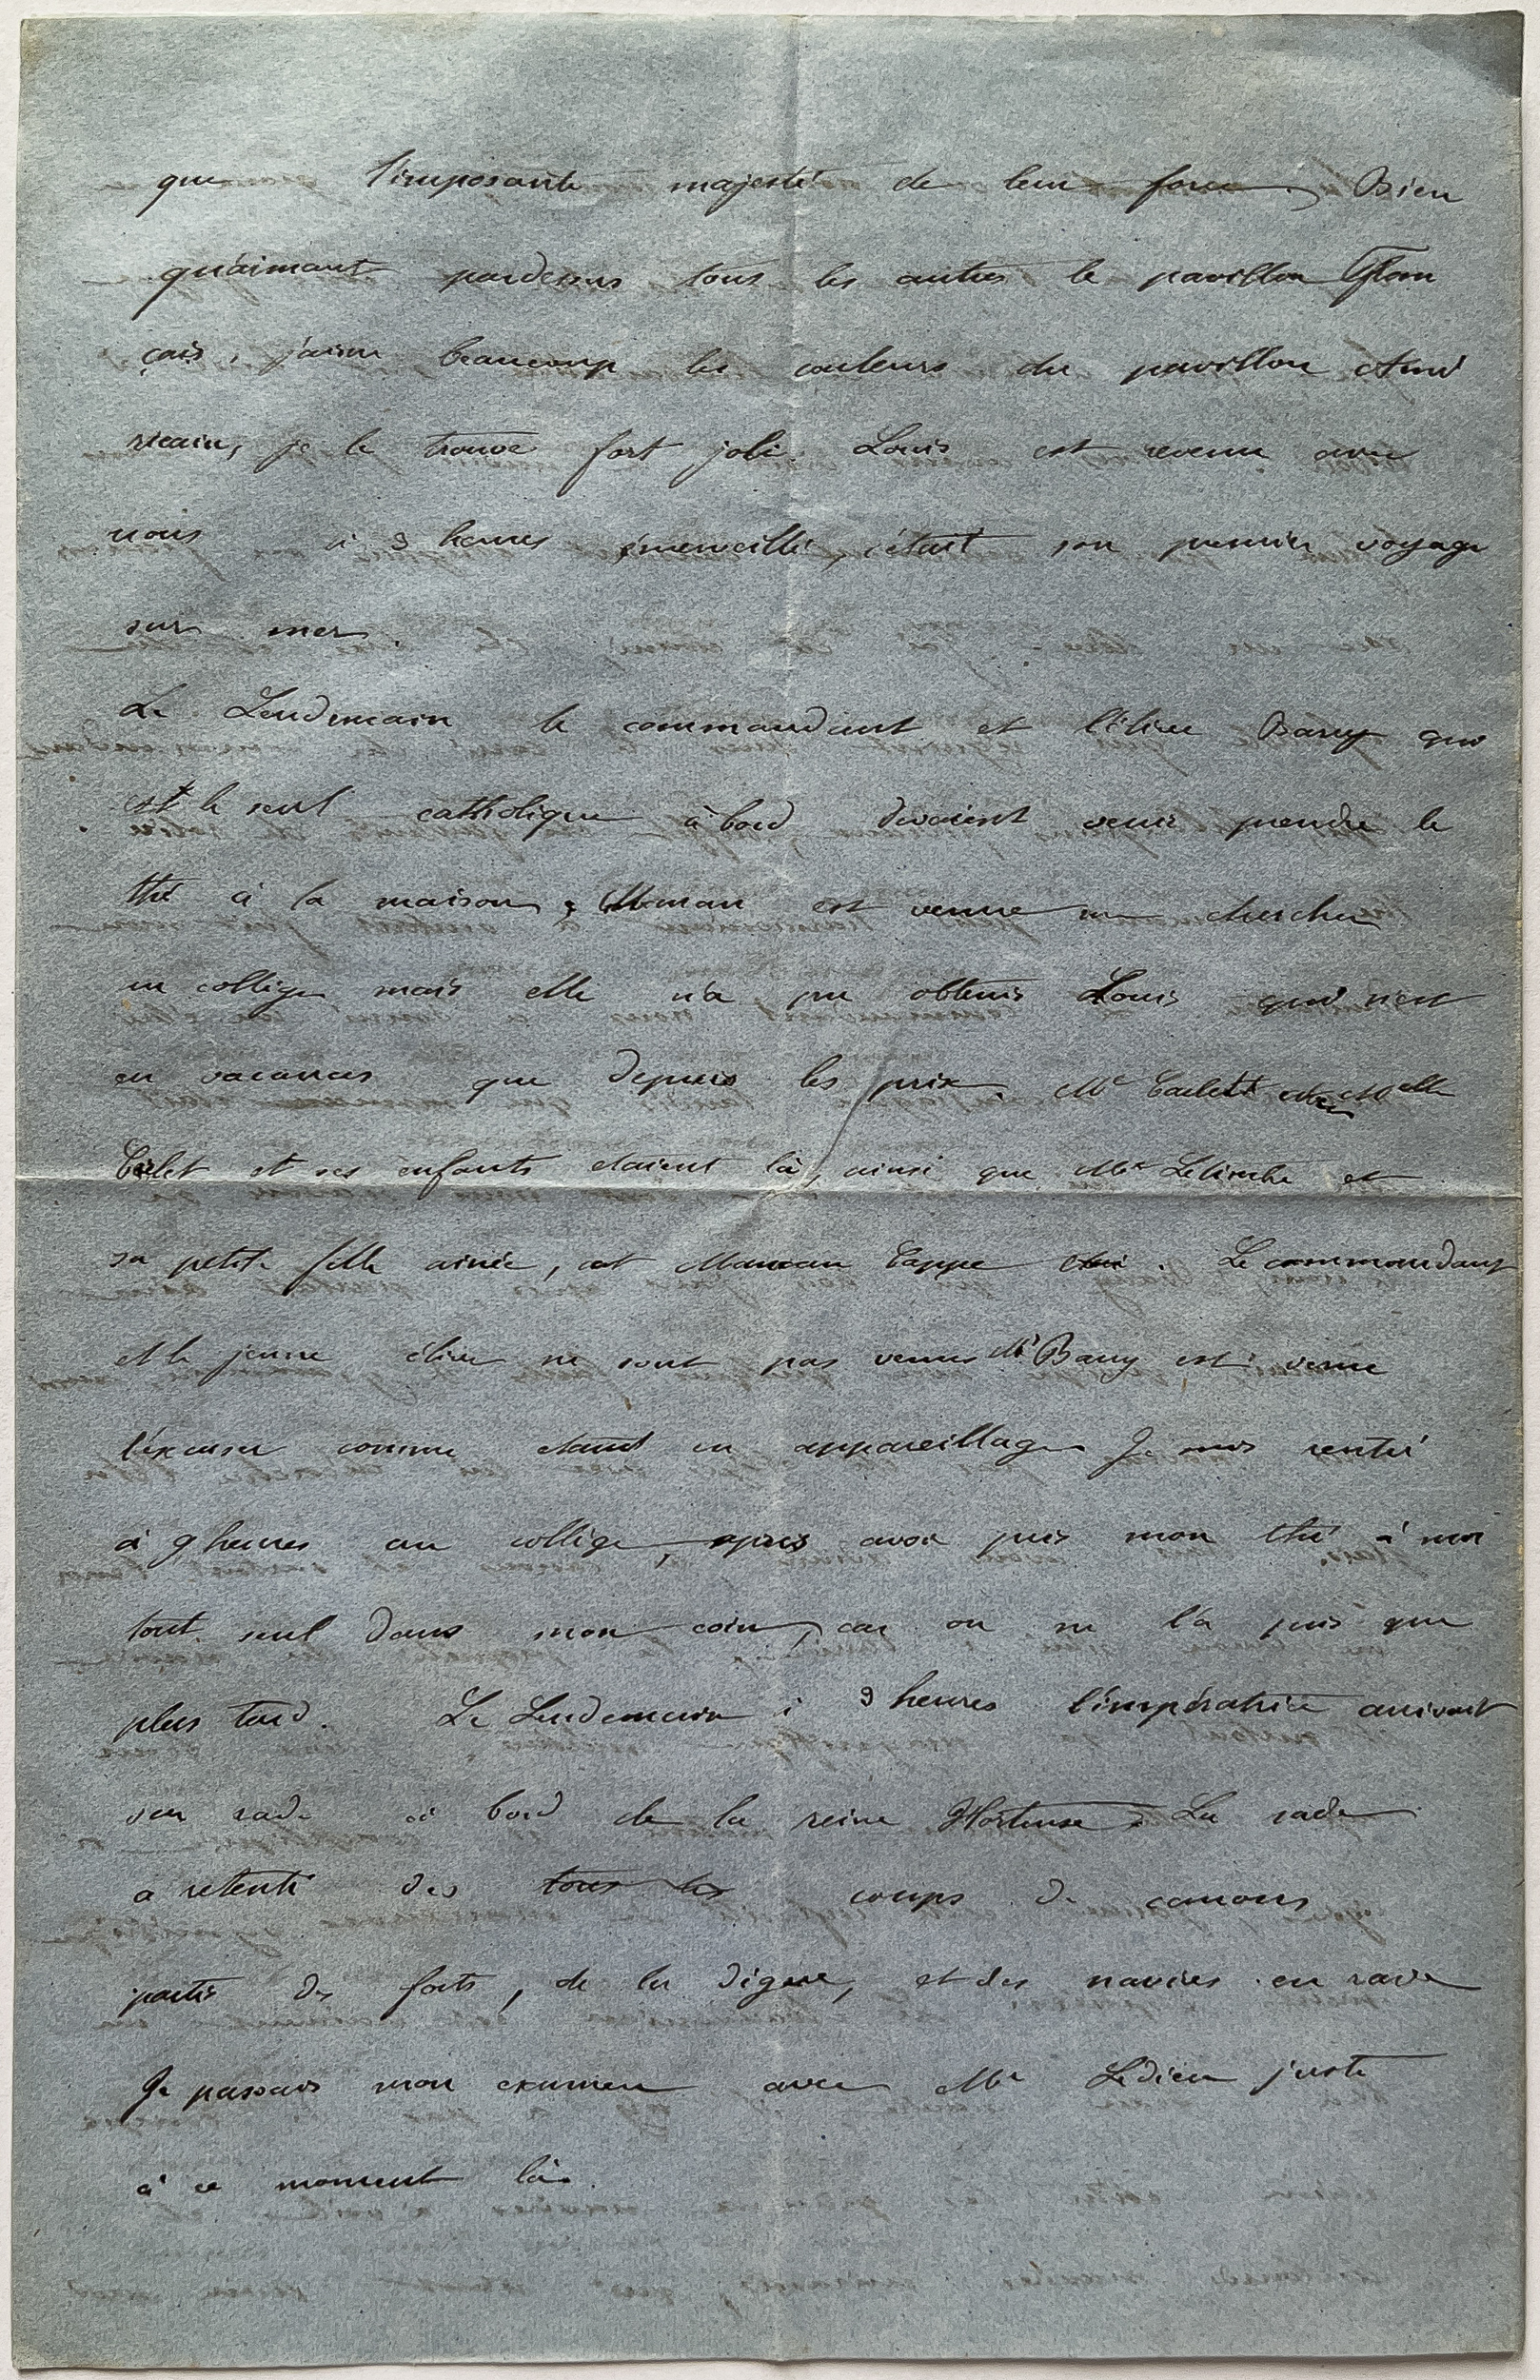 que l'imposante majesté de leur force. Bien
qu'aimant pardessus tous les autres le pavillon Fran
çais, j'aime beaucoup les couleurs du pavillon Amé
ricain, je le trouve fort joli. Louis est revenu avec
nous à 9 heures émerveillé, c'était son premier voyage
sur mer.
Le Lendemain le commandant et l'élève Barry qui
est le seul catholique à bord devaient venir prendre le
thé à la maison, Maman est venue me chercher
au collège mais elle n'a pu obtenir Louis qui n'est
en vacances que depuis les prix. Mr et Melle
et ses enfants étaient là, ainsi que Mr et
sa petite fille ainée, et Maman Cappe. Le commandant
et le jeune élève ne sont pas venus Mr Barry est venu
l'excuser comme étant en appareillage Je suis rentré
à 9 heures au collège, apres avoir pris mon thé à moi
tout seul dans mon coin, car on ne l'a pris que
plus tard. Le Lendemain à 9 heures l'impératrice arrivait
en rade à bord de la reine Hortense. La rade
a retenti des tous les coups de canons
partis des forts, de la digue, et des navires en rade
Je passais mon examen avec Mr Ledieu juste
à ce moment là.